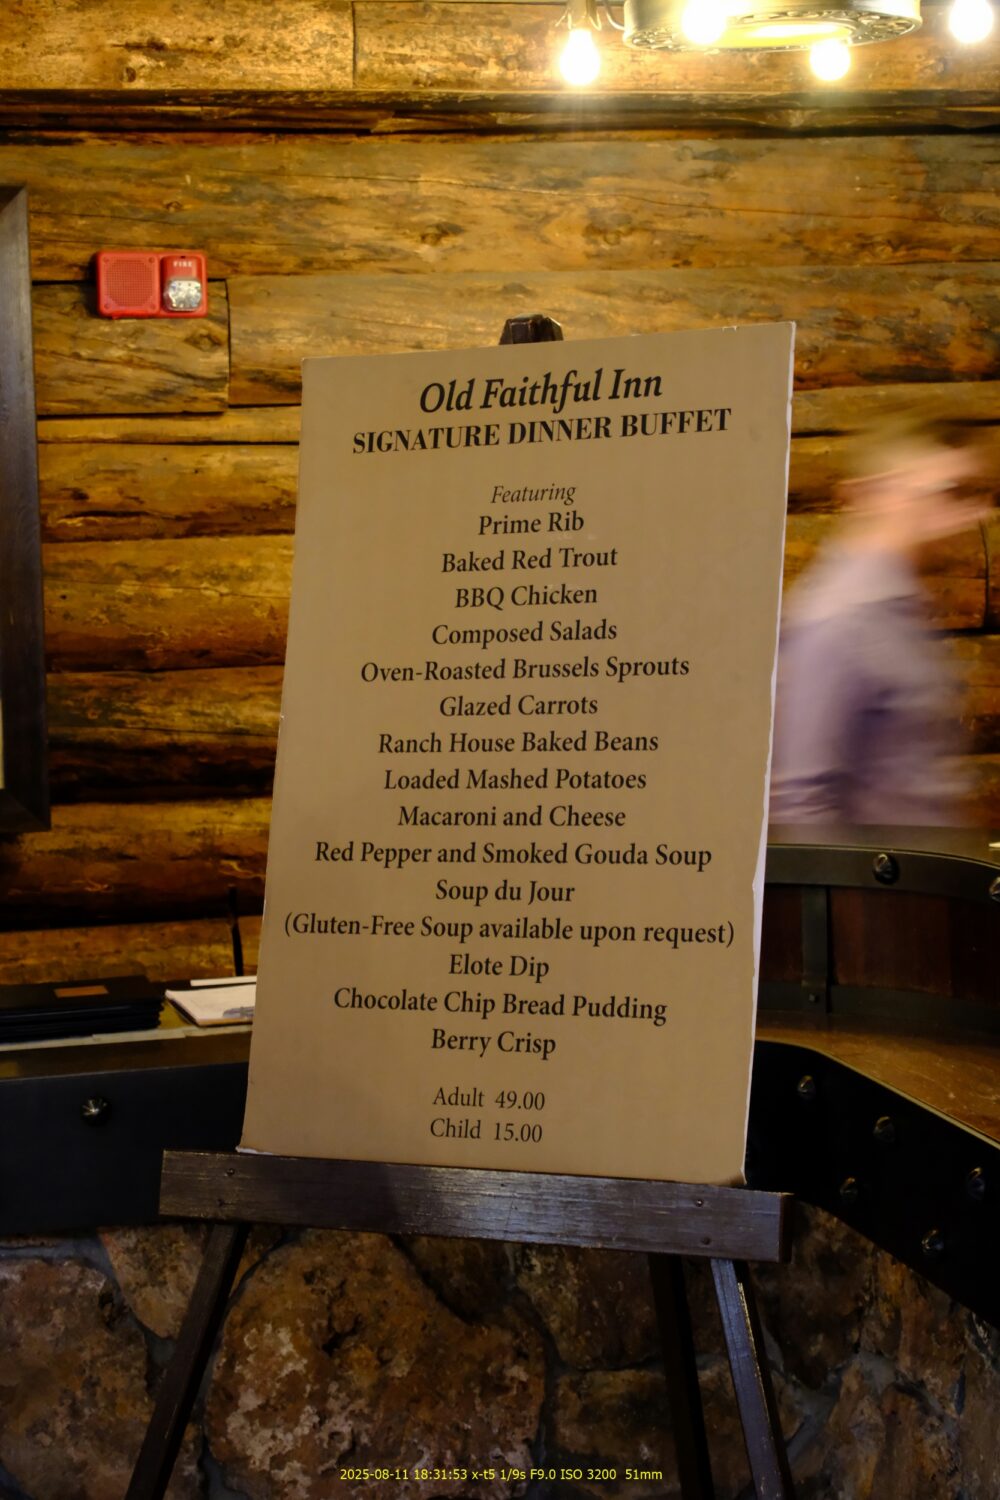 FIRE
Old Faithful Inn
SIGNATURE DINNER BUFFET
Featuring
Prime Rib
Baked Red Trout
BBQ Chicken
Composed Salads
Oven-Roasted Brussels Sprouts
Glazed Carrots
Ranch House Baked Beans
Loaded Mashed Potatoes
Macaroni and Cheese
Red Pepper and Smoked Gouda Soup
Soup du Jour
(Gluten-Free Soup available upon request)
Elote Dip
Chocolate Chip Bread Pudding
Berry Crisp
Adult 49.00
Child 15.00
2025-08-11 18:31:53 x-t5 1/9s F9.0 ISO 3200 51mm